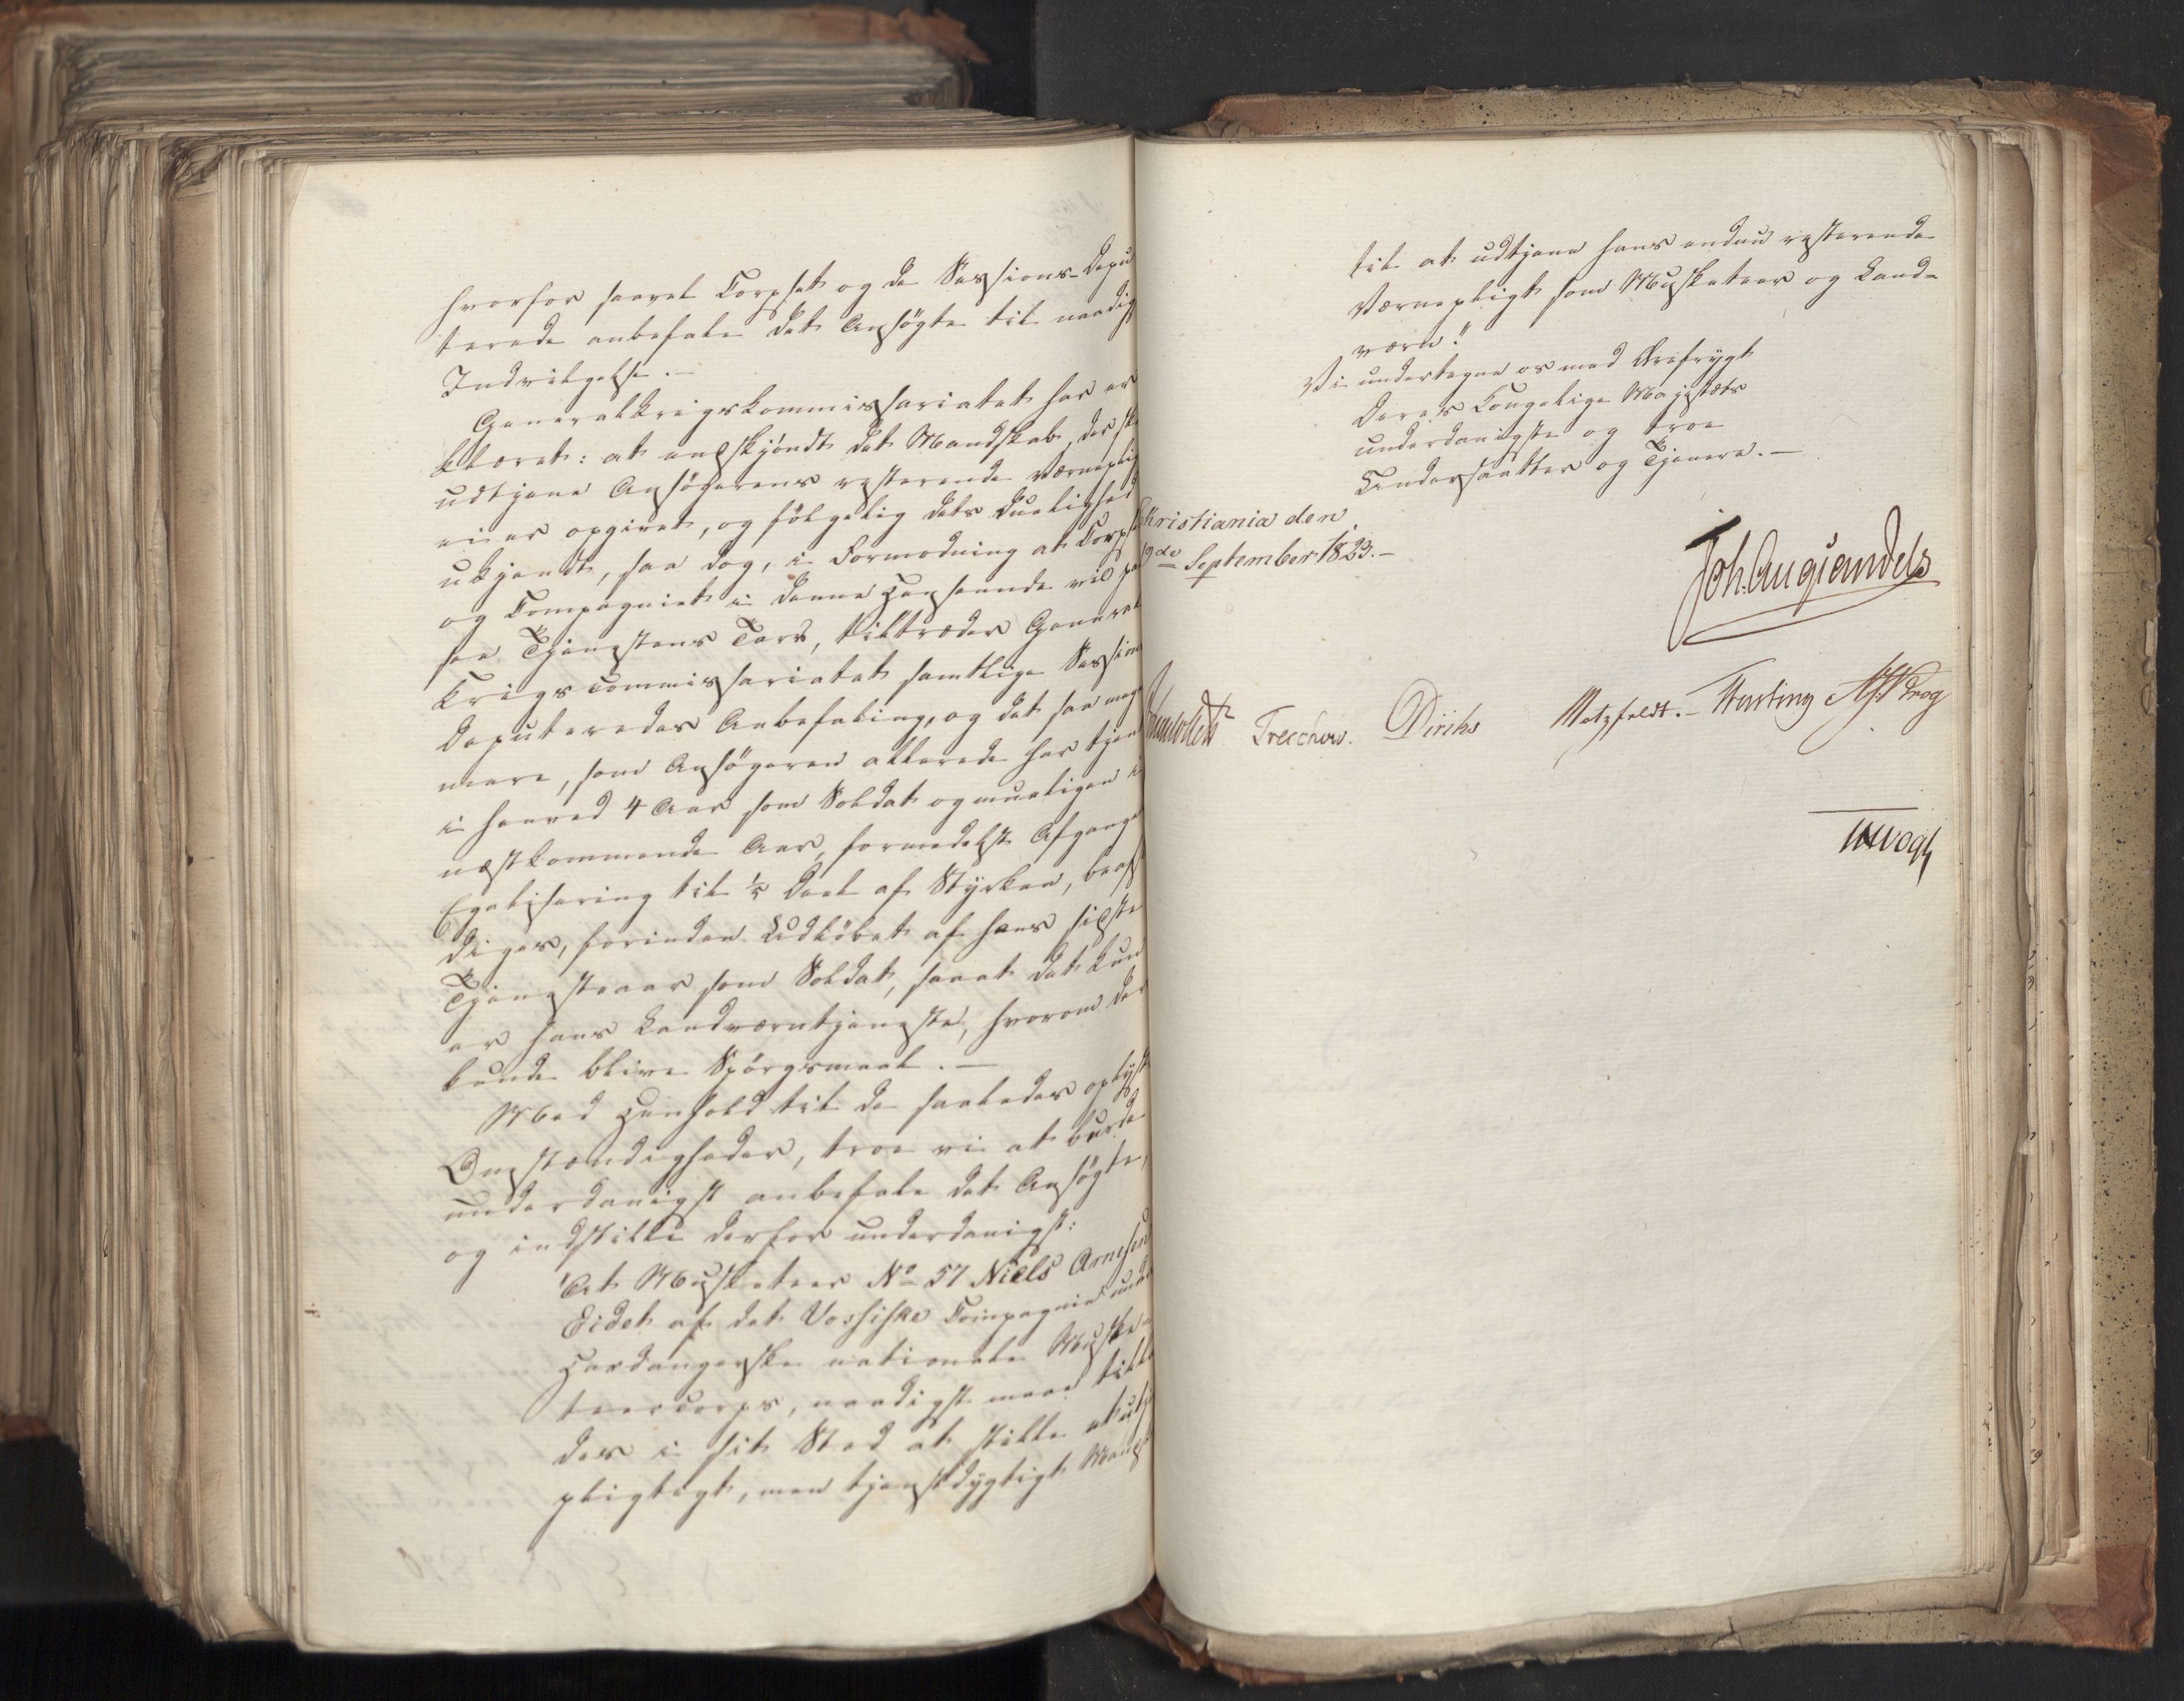 hvorfor saavel Corpset og de Sessions-Depu
terede anbefale det Ansögte til naadig
Indvilgelse.-
Generalkrigskommissariatet har er
klæret: at endskjöndt det Mandskab, der ska
udtjene Ansögerens resterende Værneplig
ei er opgivet, og fölgelig dets Duelighed
ukjendt, saa dog, i Formodning at Corps
og Compagniet i denne Henseende vil
paa Tjenestens Tarv, tiltræder General
Krigscommissariatet samtlige Session
Deputeredes Anbefaling, og det saa meget
mere, som Ansögeren allerede har tjent
i henved 4 Aar som Soldat og mueligen i
næstkommende Aar, formedelst Afgange
Egalisering til 1/5 Deel af Styrken, beaf
diges, forinden Udlöbet af hans sidste
Tjenesteaar som Soldat, saaat det kun
er hans Landværntjeneste, hvorom der
kunde blive Spörgsmaal.-
Med Henhold til de saaledes oplyst
Omstændigheder, troe vi at burde
underdanigst anbefale det Ansögte,
og indstille derfor underdanigst:
"At Musketeer No 57 Niels Arnesen
Eidet af det Vossiske Compagnie under
Hardangerske nationale Muske-
teercorps, naadigst maae tilla
des i sit Sted at stille et u
pligtigt, men tjenstdygtigt Mand
til at udtjene hans endnu resterende
Værnepligt som Musketeer og Land-
værn."
Vi undertegne os med Ærefrygt
Deres Kongelige Majestæts
underdanigste og troe
Undersaatter og Tjenere.-
Christiania den
9de September 1823.-
Joh. Aug. Sandels
Sommerfeldt Treschow. Diriks Motzfeldt.- Fasting Krog
TMVogt